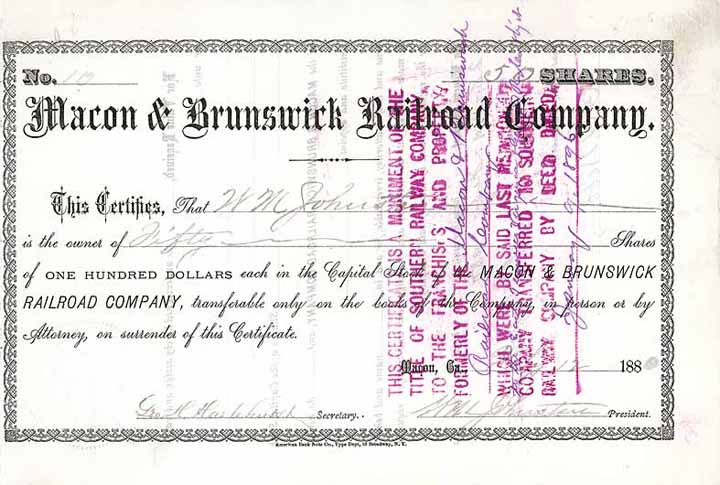 No. 50 SHARES.
Macon & Brunswick Railroad Company.
This Certifies, That W M Johnston
is the owner of Fifty Shares
of ONE HUNDRED DOLLARS each in the Capital Stock of the MACON & BRUNSWICK
RAILROAD COMPANY, transferable only on the books of the Company, in person or by
Attorney, on surrender of this Certificate.
Macon, Ga. 12 188
Geo. H. Hazlehurst Secretary. W M Johnston President.
American Bank Note Co., Type Dept, 53 Broadway, N. Y.
THIS CERTIFICATE IS A MUNIMENT OF THE
TITLE OF SOUTHERN RAILWAY COMPANY
TO THE FRANCHISES AND PROPERTY
FORMERLY OF THE Macon & Brunswick
Railroad Company
WHICH WERE BY SAID LAST MENTIONED
COMPANY TRANSFERRED TO SOUTHERN
RAILWAY COMPANY BY DEED DATED
1896